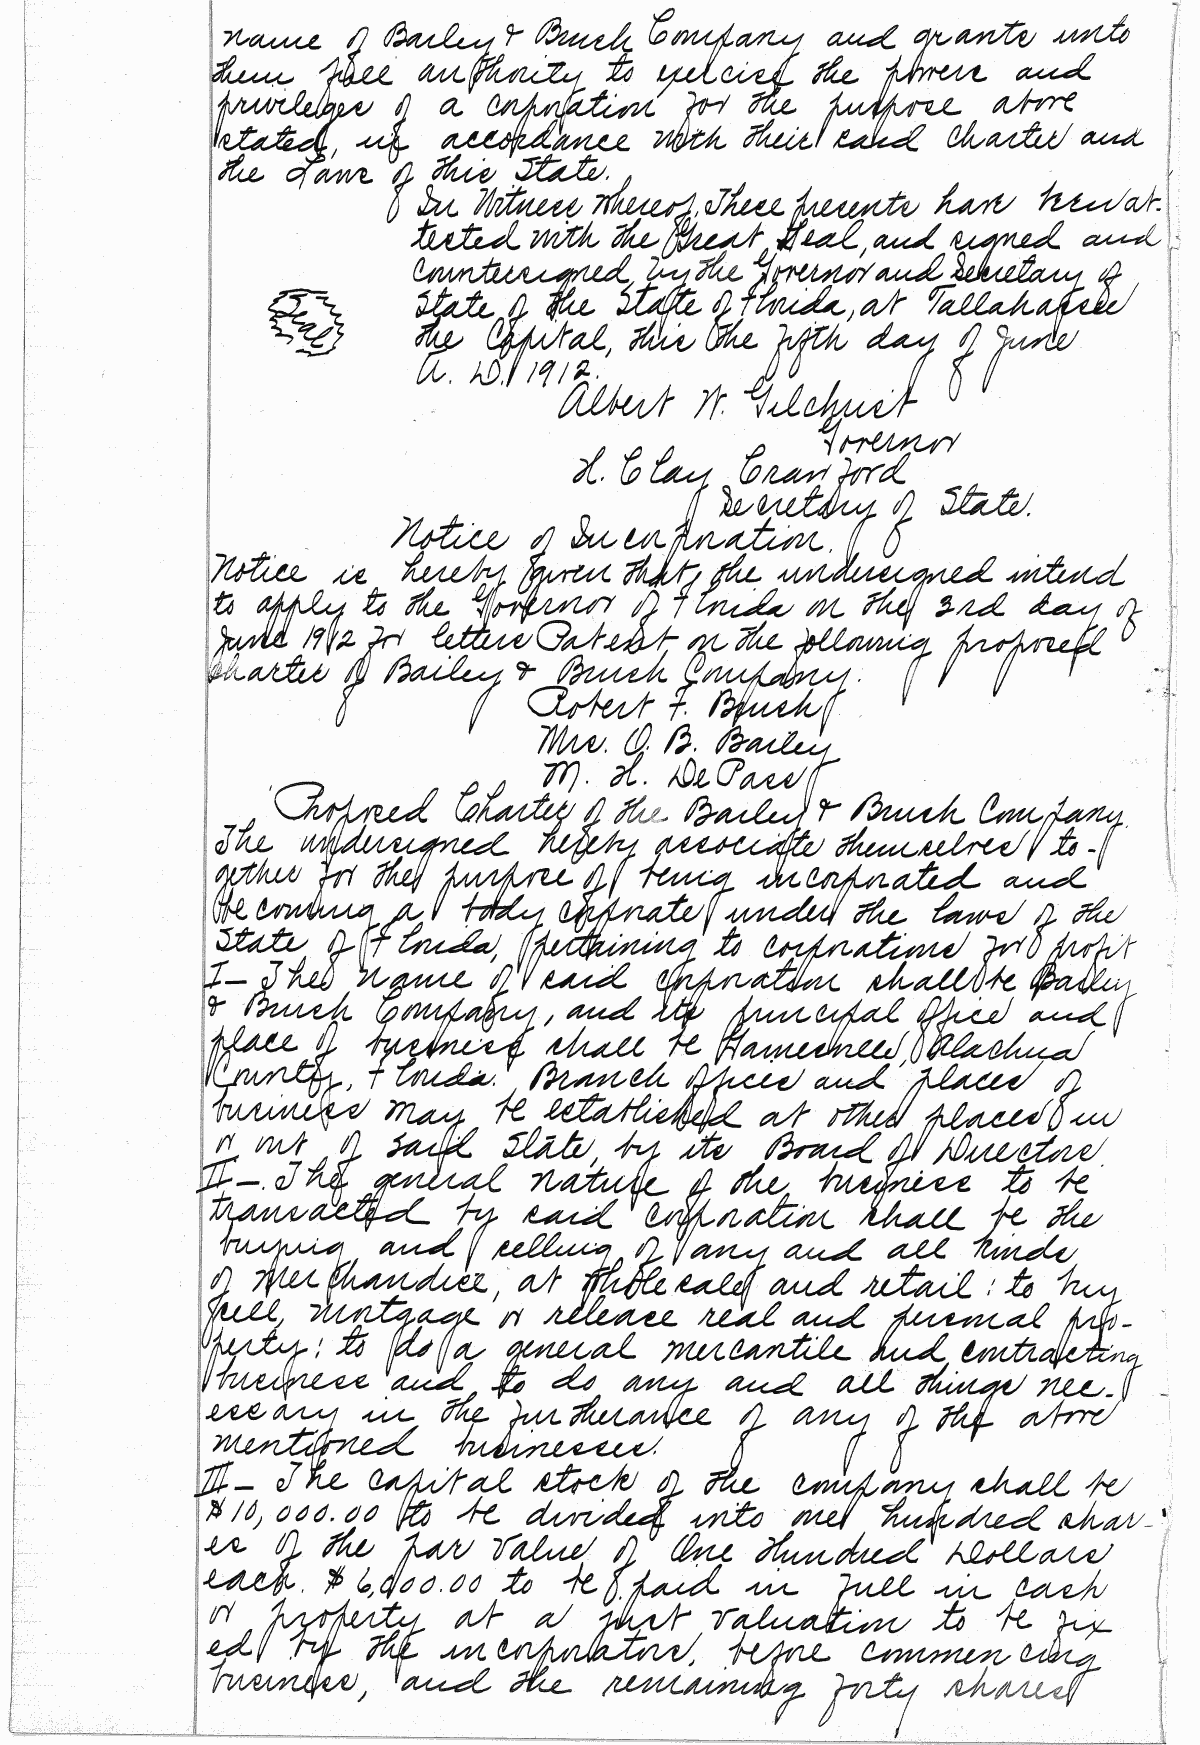 name of Bailey & Bush Company and grants unto
them full authority to exercise the powers and
privileges of a corporation for the purpose above
stated, in accordance with their said Charter and
the Laws of this State.
In Witness whereof, These presents have been at-
tested with the Great Seal, and signed and
countersigned by the Governor and Secretary of
Seal
State of the State of Florida, at Tallahassee
the Capital, this the fifth day of June
A. D. 1912.
Albert W. Gilchrist
Governor
H. Clay Crawford
Secretary of State.
Notice of Incorporation.
Notice is hereby given that, the undersigned intend
to apply to the Governor of Florida on the 3rd day of
June 1912 for letters Patent on the following proposed
charter of Bailey & Bush Company.
Robert F. Bush
Mrs. O. B. Bailey
M. H. DePass
Proposed Charter of the Bailey & Bush Company.
The undersigned hereby associate themselves to-
gether for the purpose of being incorporated and
becoming a body corporate under the laws of the
State of Florida, pertaining to corporations for profit
I— The name of said corporation shall be Bailey
& Bush Company, and its principal office and
place of business shall be Gainesville, Alachua
County, Florida. Branch offices and places of
business may be established at other places in
or out of said State, by its Board of Directors.
II—. The general nature of the business to be
transacted by said corporation shall be the
buying and selling of any and all kinds
of merchandise, at wholesale and retail: to buy
sell, mortgage or release real and personal pro-
perty: to do a general mercantile and contracting
business and to do any and all things nec-
essary in the furtherance of any of the above
mentioned businesses.
III— The capital stock of the company shall be
$10,000.00 to be divided into one hundred shar-
es of the par value of One Hundred Dollars
each. $6,000.00 to be paid in full in cash
or property at a just valuation to be fix
ed by the incorporators, before commencing
business, and the remaining forty shares